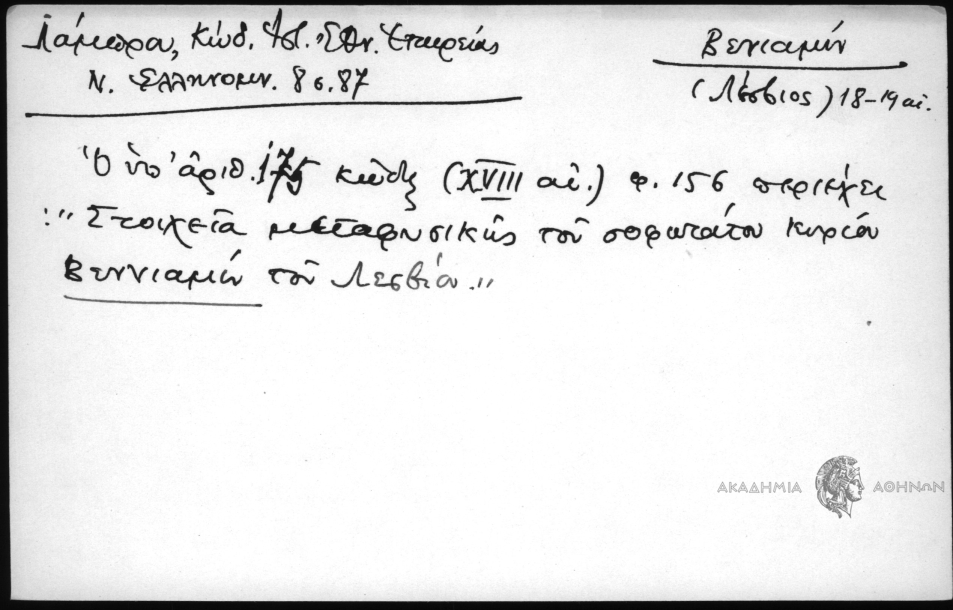 Λάμπρου, Κώδ. Ἱστ. Ἐθν. Ἑταιρείας
Ν. Ἑλληνομν. 8 σ. 87
Βενιαμὶν
(Λέσβιος) 18-19 αἰ.
Ὁ ὑπ' ἀριθ. 175 κώδηξ (XVIII αἰ.) φ. 156 περιέχει
: "Στοιχεῖα μεταφυσικῆς τοῦ σοφωτάτου κυρίου
Βεννιαμὶν τοῦ Λεσβίου."
ΑΚΑΔΗΜΙΑ ΑΘΗΝΩΝ